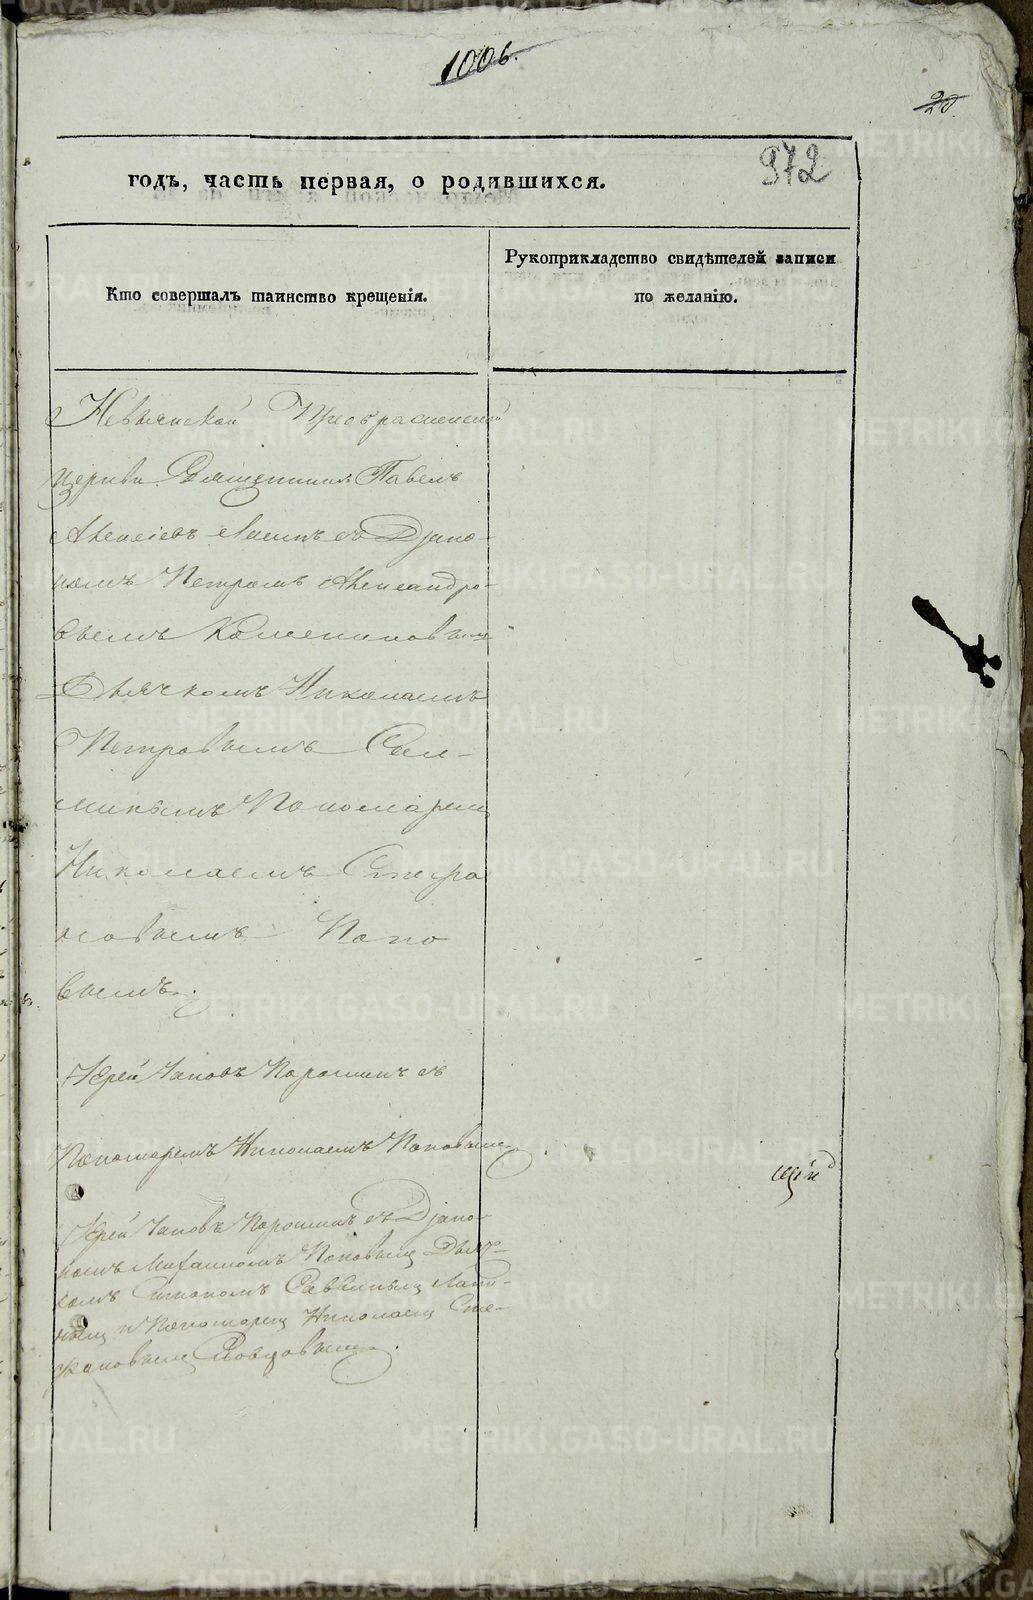 1006.
20.
972
годъ, часть первая, о родившихся.
Кто совершалъ таинство крещенія.
Рукоприкладство свидѣтелей записи
по желанію.
Невьянской Преображенской
церкви Священникъ Павелъ
Алексіевъ съ Діако-
номъ Петромъ Александро-
вымъ
Дьячкомъ Николаемъ
Петровымъ
Пономаремъ
Николаемъ Стефа
новымъ Попо
вымъ.
Іерей Іаковъ Порошинъ съ
Пономаремъ Николаемъ Поповымъ
Іерей Іаковъ Порошинъ съ Діако-
номъ Михаиломъ Поповымъ Дьяч-
комъ Симономъ Саввинымъ
и Пономаремъ Николаемъ Сте-
фановымъ
METRIKI.GASO-URAL.RU